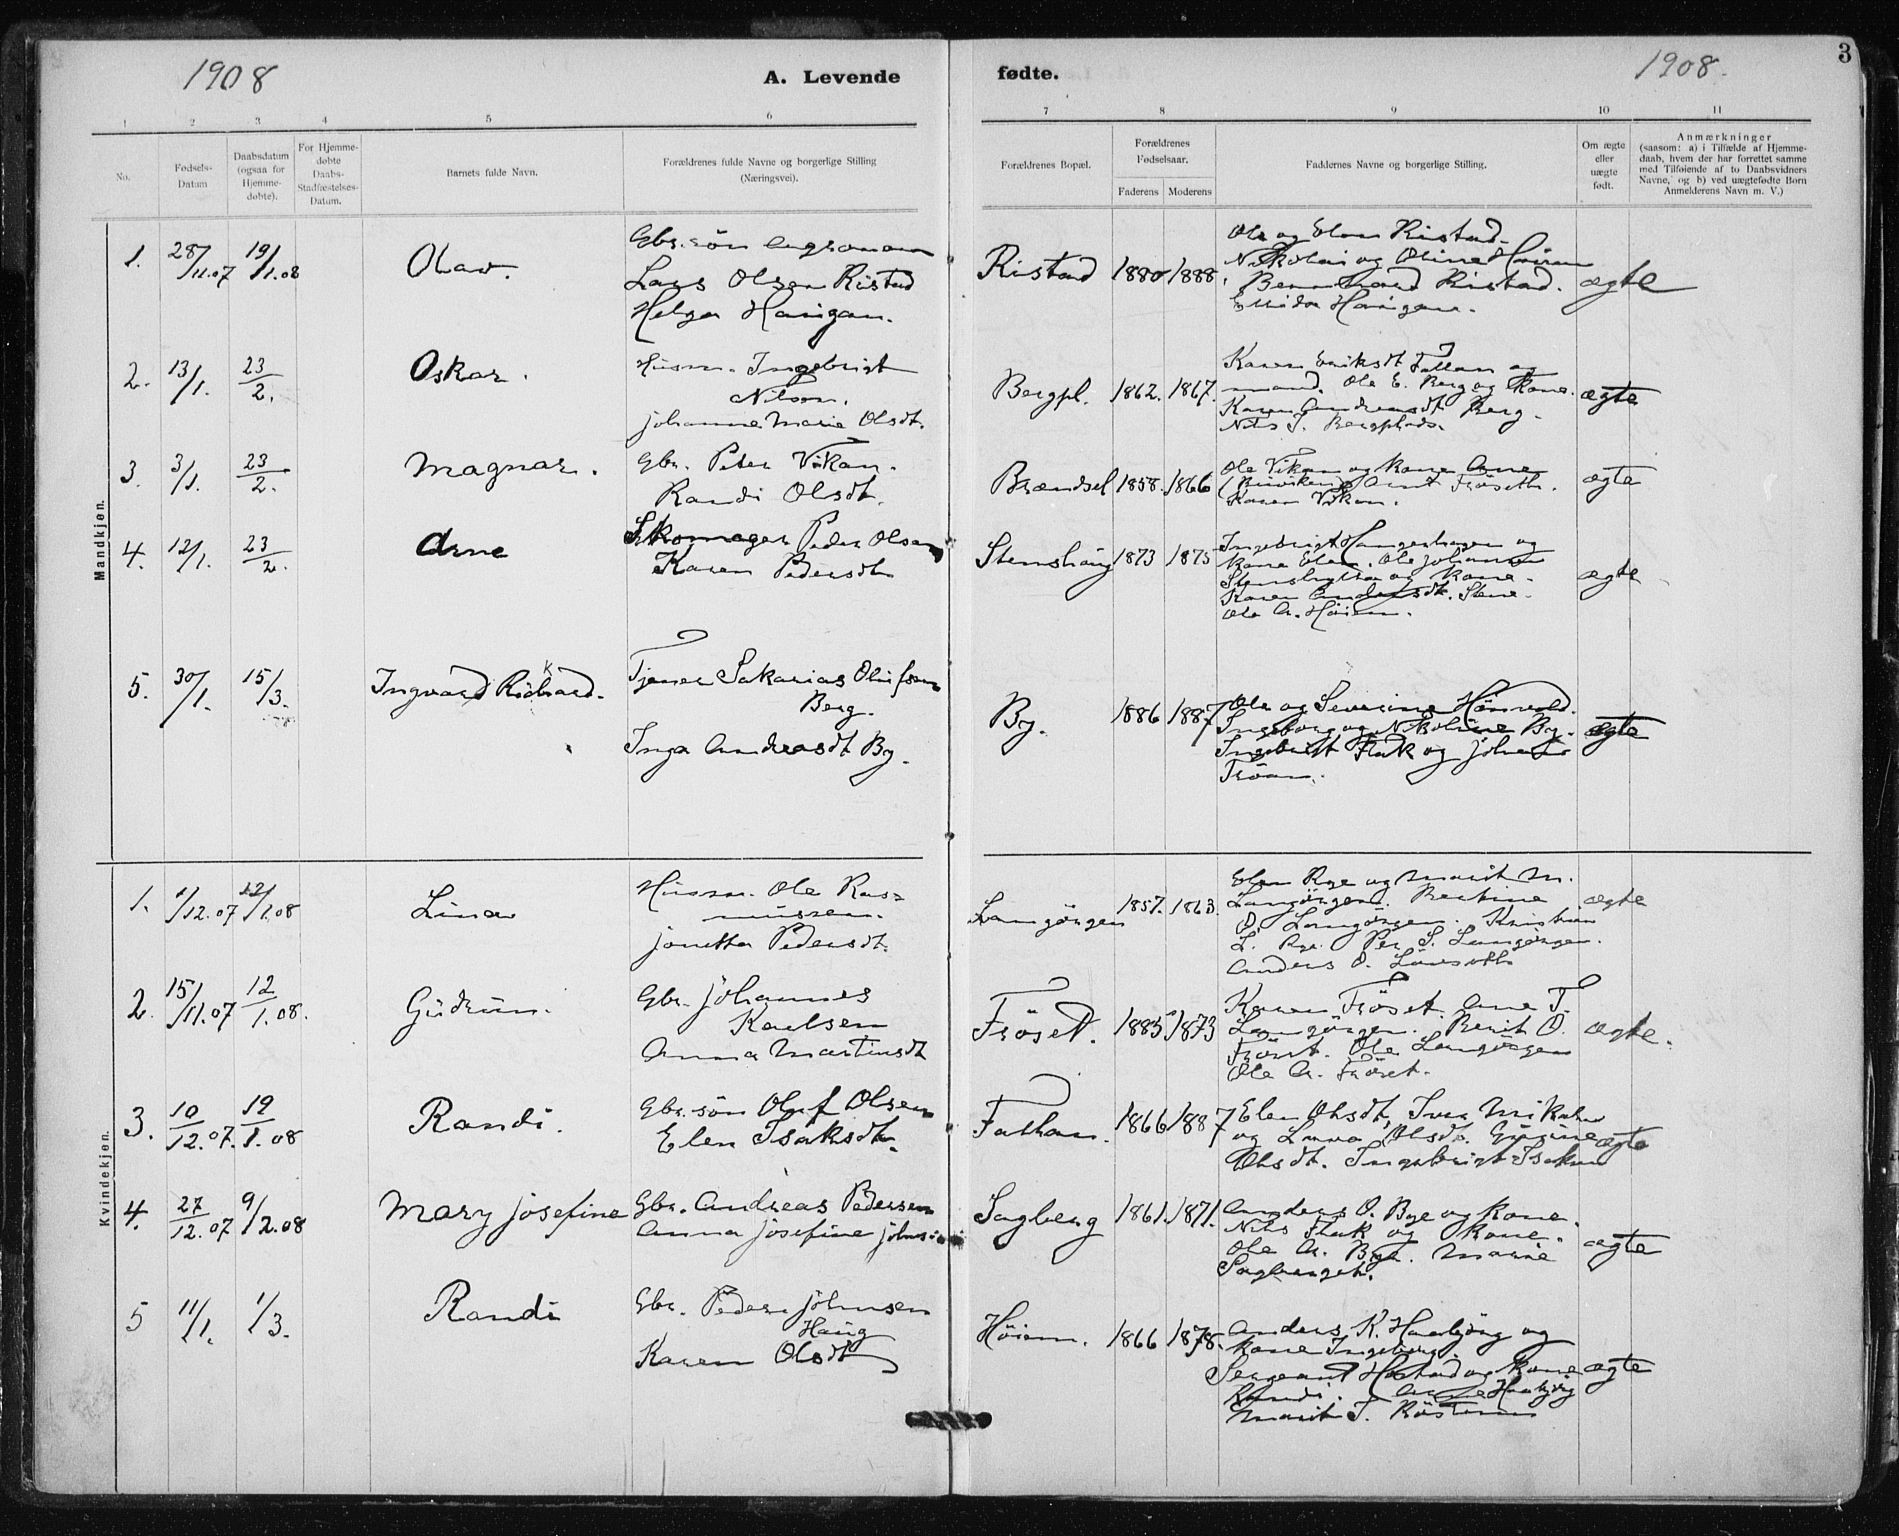 1908
A. Levende
fødte.
1908.
3
1 2 3 4 5 6 7 8 9 10 11
No.
Fødsels-
Datum
Daabsdatum
(ogsaa for
Hjemme-
døbte).
For Hjemme-
døbte
Daabs-
Stadfæstelses-
Datum.
Barnets fulde Navn.
Forældrenes fulde Navne og borgerlige Stilling
(Næringsvei).
Forældrenes Bopæl.
Forældrenes
Fødselsaar.
Faderens Moderens
Faddernes Navne og borgerlige Stilling.
Om ægte
eller
uægte
født.
Anmærkninger
(saasom: a) i Tilfælde af Hjemme-
daab, hvem der har forrettet samme
med Tilføiende af to Daabsvidners
Navne, og b) ved uægtefødte Børn
Anmelderens Navn m. V.)
Mandkjøn.
1. 28/11.07 19/1.08 Olav.
Gbr. søn agronom
Lars Olsen Ristad
Helga Haugan.
Ristad 1880 1888
Ole og Elen Ristad.
Nikolai og Oline Höiem
Bernhard Ristad.
Haugan.
ægte
2. 13/1. 23/2. Oskar.
Husm. Ingebrigt
Nilsen.
Johanna Marie Olsdt.
Bergpl. 1862. 1867.
Karen Eriksdt Fallan og
mand. Ole E. Berg og Kone.
Karen Andreasdt Berg.
Nils J. Bergplads.
ægte
3. 3/1. 23/2. Magnar.
Gbr. Peter Vikan.
Randi Olsdt.
Brændsel 1858. 1866
Ole Vikan og Kone Ane
Arnt Fröseth.
Karen Vikan.
ægte
4. 12/1. 23/2. Arne
Skomager Peder Olsen
Karen Pedersdt
Stenshaug 1873 1875
Ingebrigt Haugenhagen og
Kone Elen. Ole Johansen
Stenshytten og Kone.
Karen Andersdt. Stene.
Ole A. Höiem.
ægte
5. 30/1. 15/3. Ingvard Rickard.
Tjener Sakarias Olufsen
Berg.
Inga Andreasdt By.
By. 1886 1887
Ole og Severine Hönvold.
Ingeborg og Nikoline By.
Ingebrigt Flak og Johanna
Tröan.
ægte
Kvindekjøn.
1. 1/12.07 12/1.08 Lina
Husm. Ole Ras=
mussen.
Jonetta Pedersdt.
Langörgen 1857. 1863.
Elen Rye og Marit M.
Langörgen. Bertine
O. Langörgen. Kristian
L. Rye. Per S. Langörgen.
Anders O.
ægte
2. 15/11.07 12/1.08. Gudrun.
Gbr. Johannes
Karlsen
Anna Martinsdt
Fröset. 1885 1873
Karen Fröset. Ane T.
Langörgen. Berit O.
Fröset. Ole Langörgen
Ole A. Fröset.
ægte.
3. 10/12.07. 19/1.08 Randi.
Gbr. søn Oluf Olsen
Elen Isaksdt.
Fallan. 1866 1887
Elen Olsdt, Iver Mikalsen
og Lina Olsdt. Gurine
Olsdt. Ingebrigt Isaksen
ægte
4. 27/12.07 9/2.08 Mary Josefine
Gbr. Andreas Pedersen
Anna Josefine Johnsen
Sagberg 1861. 1871.
Anders O. Bye og Kone.
Nils Flak og Kone.
Ole A. Bye. Marie
Sagberget.
ægte
5 11/1. 1/3. Randi
Gbr. Peder Johnsen
Haug
Karen Olsdt
Höiem. 1866 1878.
Anders K. Haabjörg og
Kone Ingeborg
Sergeant Harstad og Kone
Randi. Anne Haabjörg
Marit J.
ægte